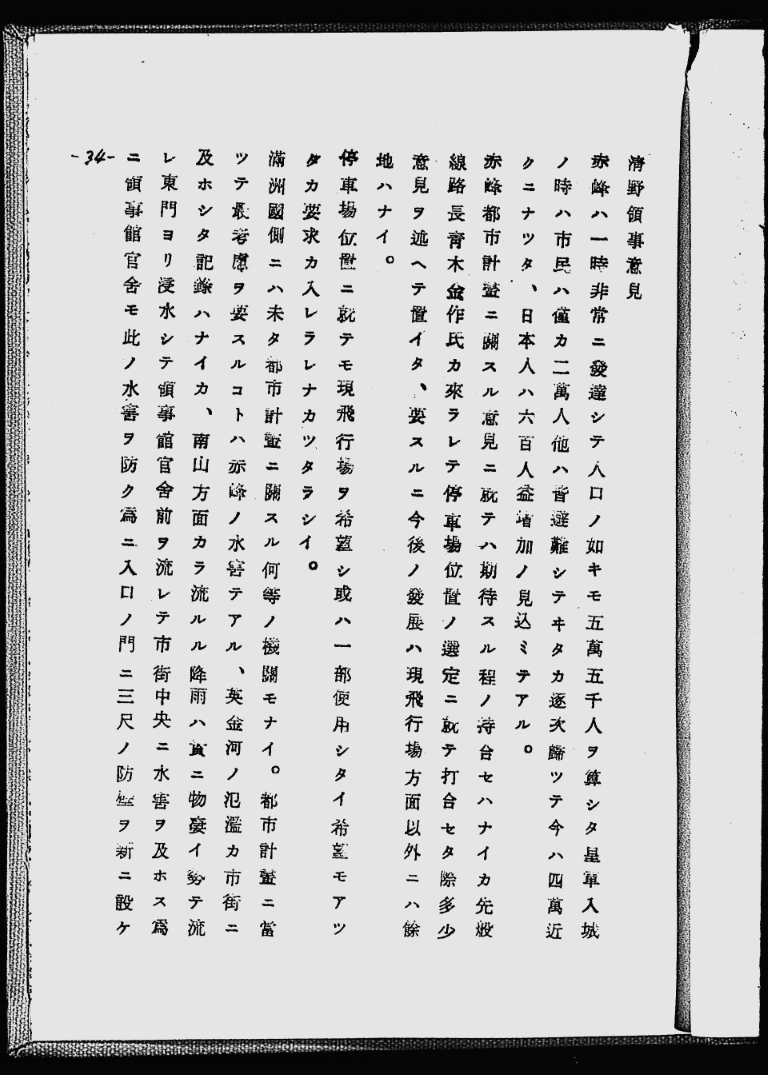 清野領事意見
赤峰ハ一時非常ニ發達シテ人口ノ如キモ五萬五千人ヲ算シタ皇軍入城
ノ時ハ市民ハ僅カ二萬人他ハ皆避難シテヰタカ逐次歸ツテ今ハ四萬近
クニナツタ、日本人ハ六百人益增加ノ見込ミテアル。
赤峰都市計畫ニ關スル意見ニ就テハ期待スル程ノ持合セハナイカ先般
線路長靑木金作氏カ來ラレテ停車場位置ノ選定ニ就テ打合セタ際多少
意見ヲ述ヘテ置イタ、要スルニ今後ノ發展ハ現飛行場方面以外ニハ餘
地ハナイ。
停車場位置ニ就テモ現飛行場ヲ希望シ或ハ一部使用シタイ希望モアツ
タカ要求カ入レラレナカツタラシイ。
滿洲國側ニハ未タ都市計畫ニ關スル何等ノ機關モナイ。都市計畫ニ當
ツテ最考慮ヲ要スルコトハ赤峰ノ水害テアル、英金河ノ氾濫カ市街ニ
及ホシタ記錄ハナイカ、南山方面カラ流ルル降雨ハ實ニ物凄イ勢テ流
レ東門ヨリ浸水シテ領事館官舍前ヲ流レテ市街中央ニ水害ヲ及ホス爲
ニ領事館官舍モ此ノ水害ヲ防ク爲ニ入口ノ門ニ三尺ノ防壁ヲ新ニ設ケ
-34-